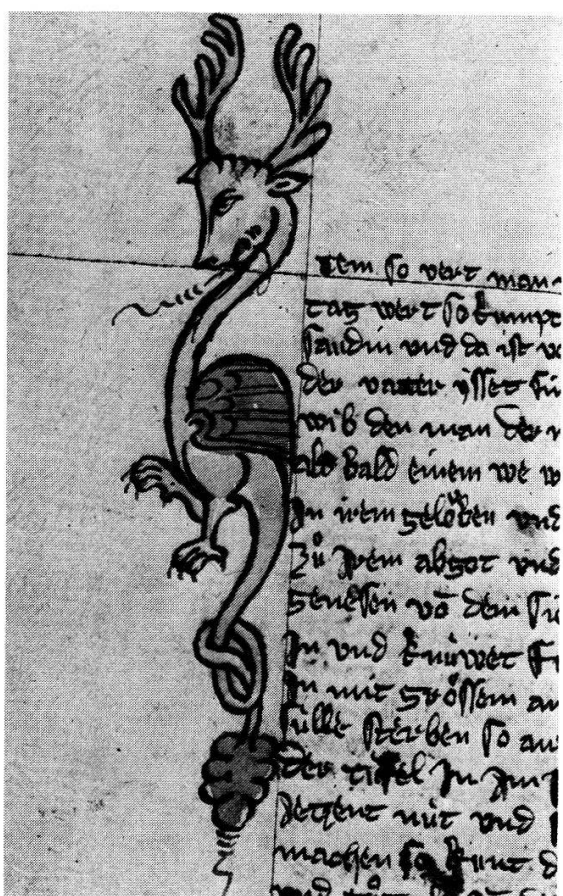 tem so vert man
tag vert so kumpt
und da ist
der vatter isset sin
wib den man der
als bald einem we w
In irem gelöben und
Zů Irem abgot und
genesen vō dem
In und knüwet
In mit grössem an
sülle sterben so
der tifel In
Jetzent nüt und
machen so kunt d